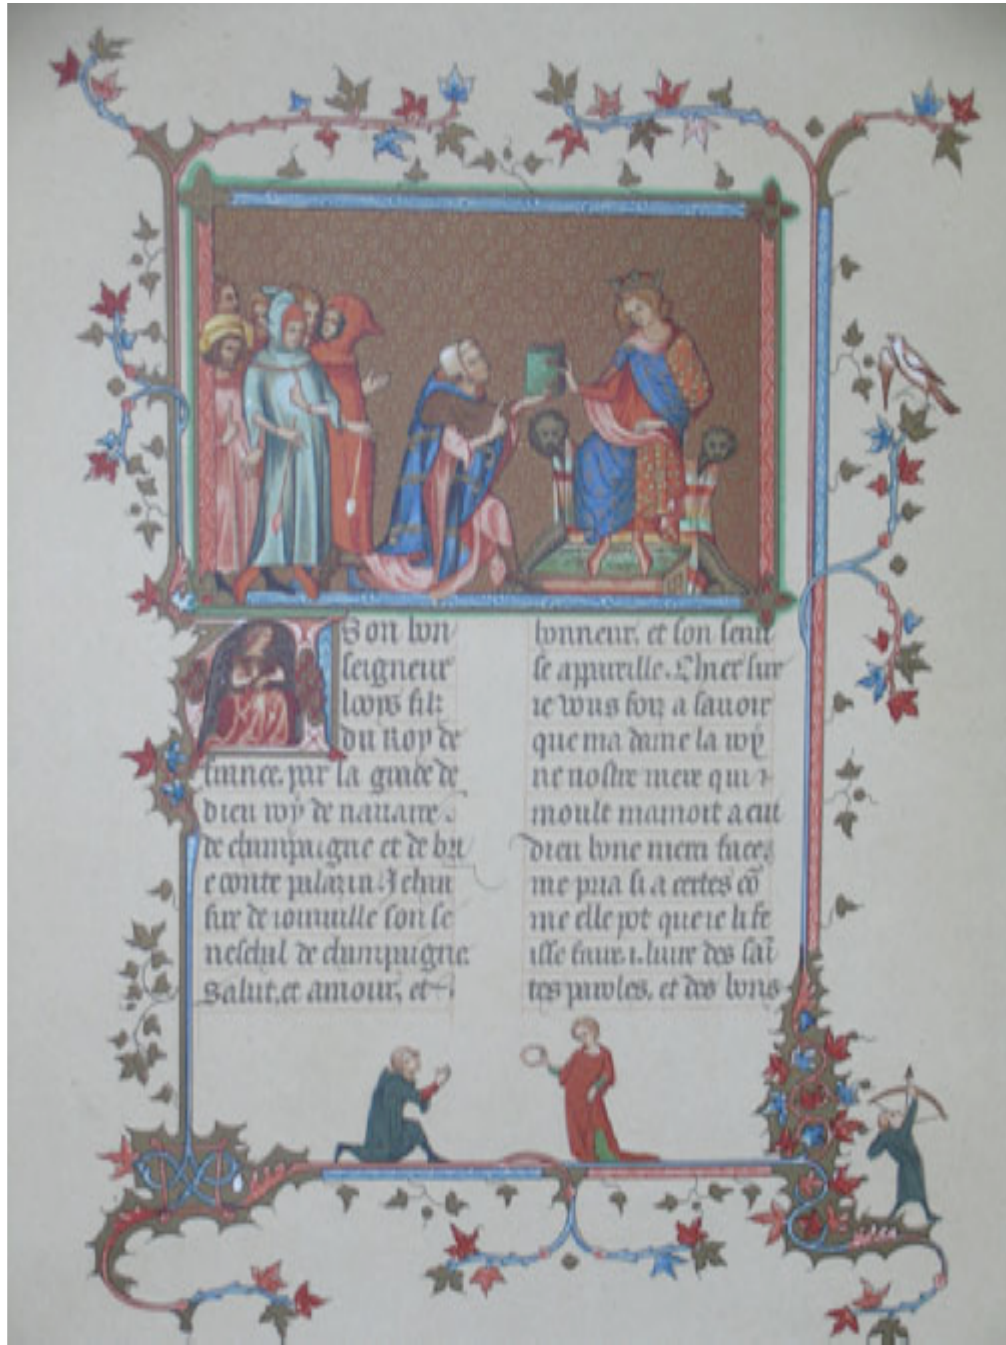 A son bon
seigneur
looys filz
du Roy de
france. par la grace de
dieu roy de nauarre
de champaigne et de bri
e conte palazin. Jehan
sire de ioinuille son se
neschal de champaigne
Salut. et amour, et
honneur, et son seruise
appareille. Chier sire
ie vous foiz a sauoir
que ma dame la roy
ne nostre mere qui
moult mamoit a cui
dieu bone merci face.
me pria si a certes cõ
me elle pot que ie li fe
isse faire .i. liure des sai
tes paroles, et des bons